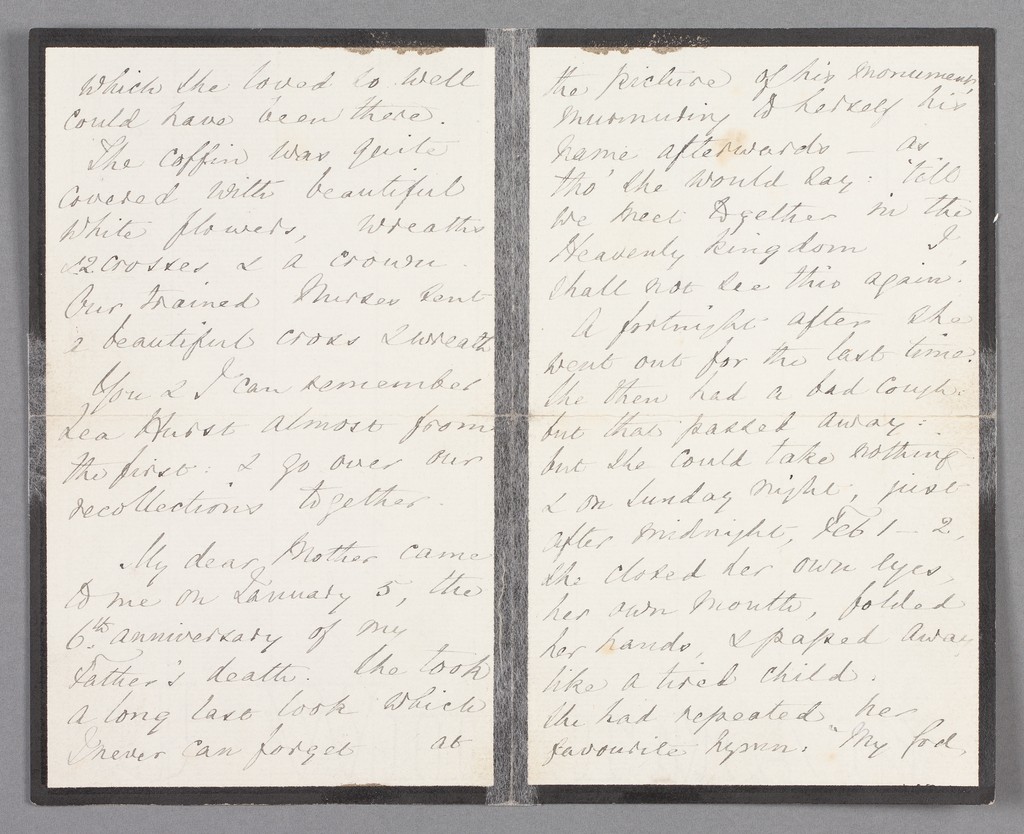 which she loved so well
could have been there.
The coffin was quite
covered with beautiful
white flowers, wreaths
12 crosses & a crown.
Our trained Nurses sent
a beautiful cross & wreath
You & I can remember
Lea Hurst almost from
the first: & go over our
recollections together.
My dear Mother came
to me on January 5, the
6th anniversary of my
Father's death. She took
a long last look which
I never can forget at
the picture of his monument
murmuring to herself his
name afterwards — as
tho' she would say: 'till
we meet together in the
Heavenly kingdom I
shall not see this again.'
A fortnight after she
went out for the last time.
She then had a bad cough:
but that passed away:
but she could take nothing
& on Sunday night, just
after midnight, Feb 1 – 2,
she closed her own eyes,
her own mouth, folded
her hands, & passed away
like a tired child.
She had repeated her
favourite hymn: "My God,